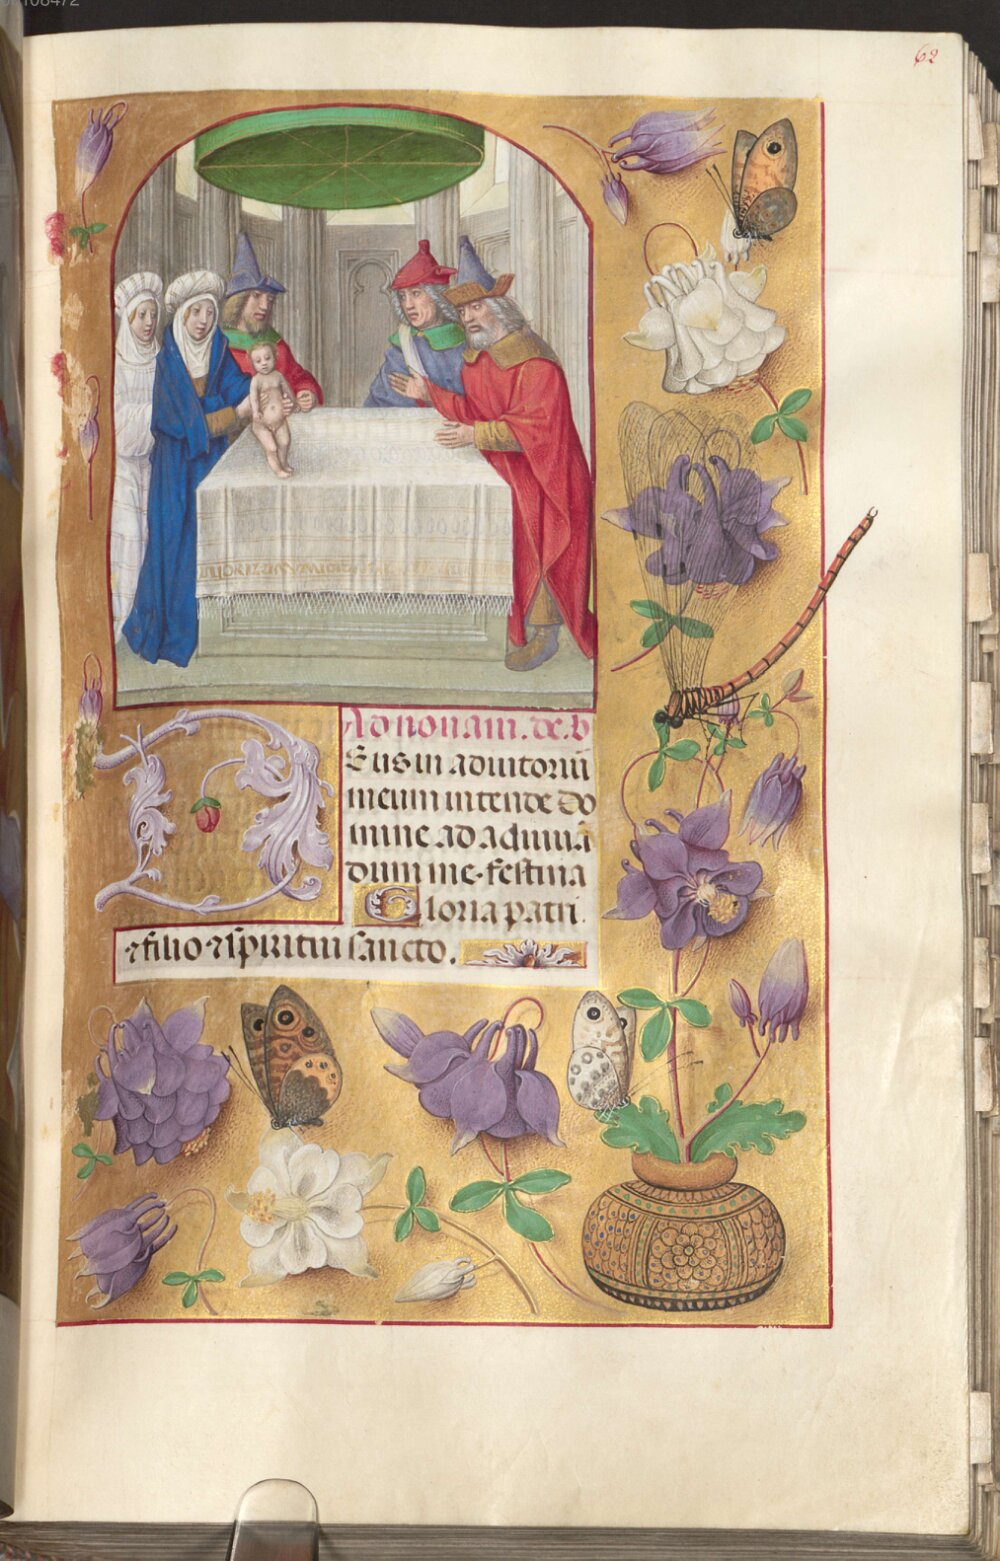 62
Ad nonam. de. b
Eus in adiutoriū
meum intende do
mine ad adiuuā
dum me festina
Gloria patri.
⁊ filio ⁊ spiritui sancto.